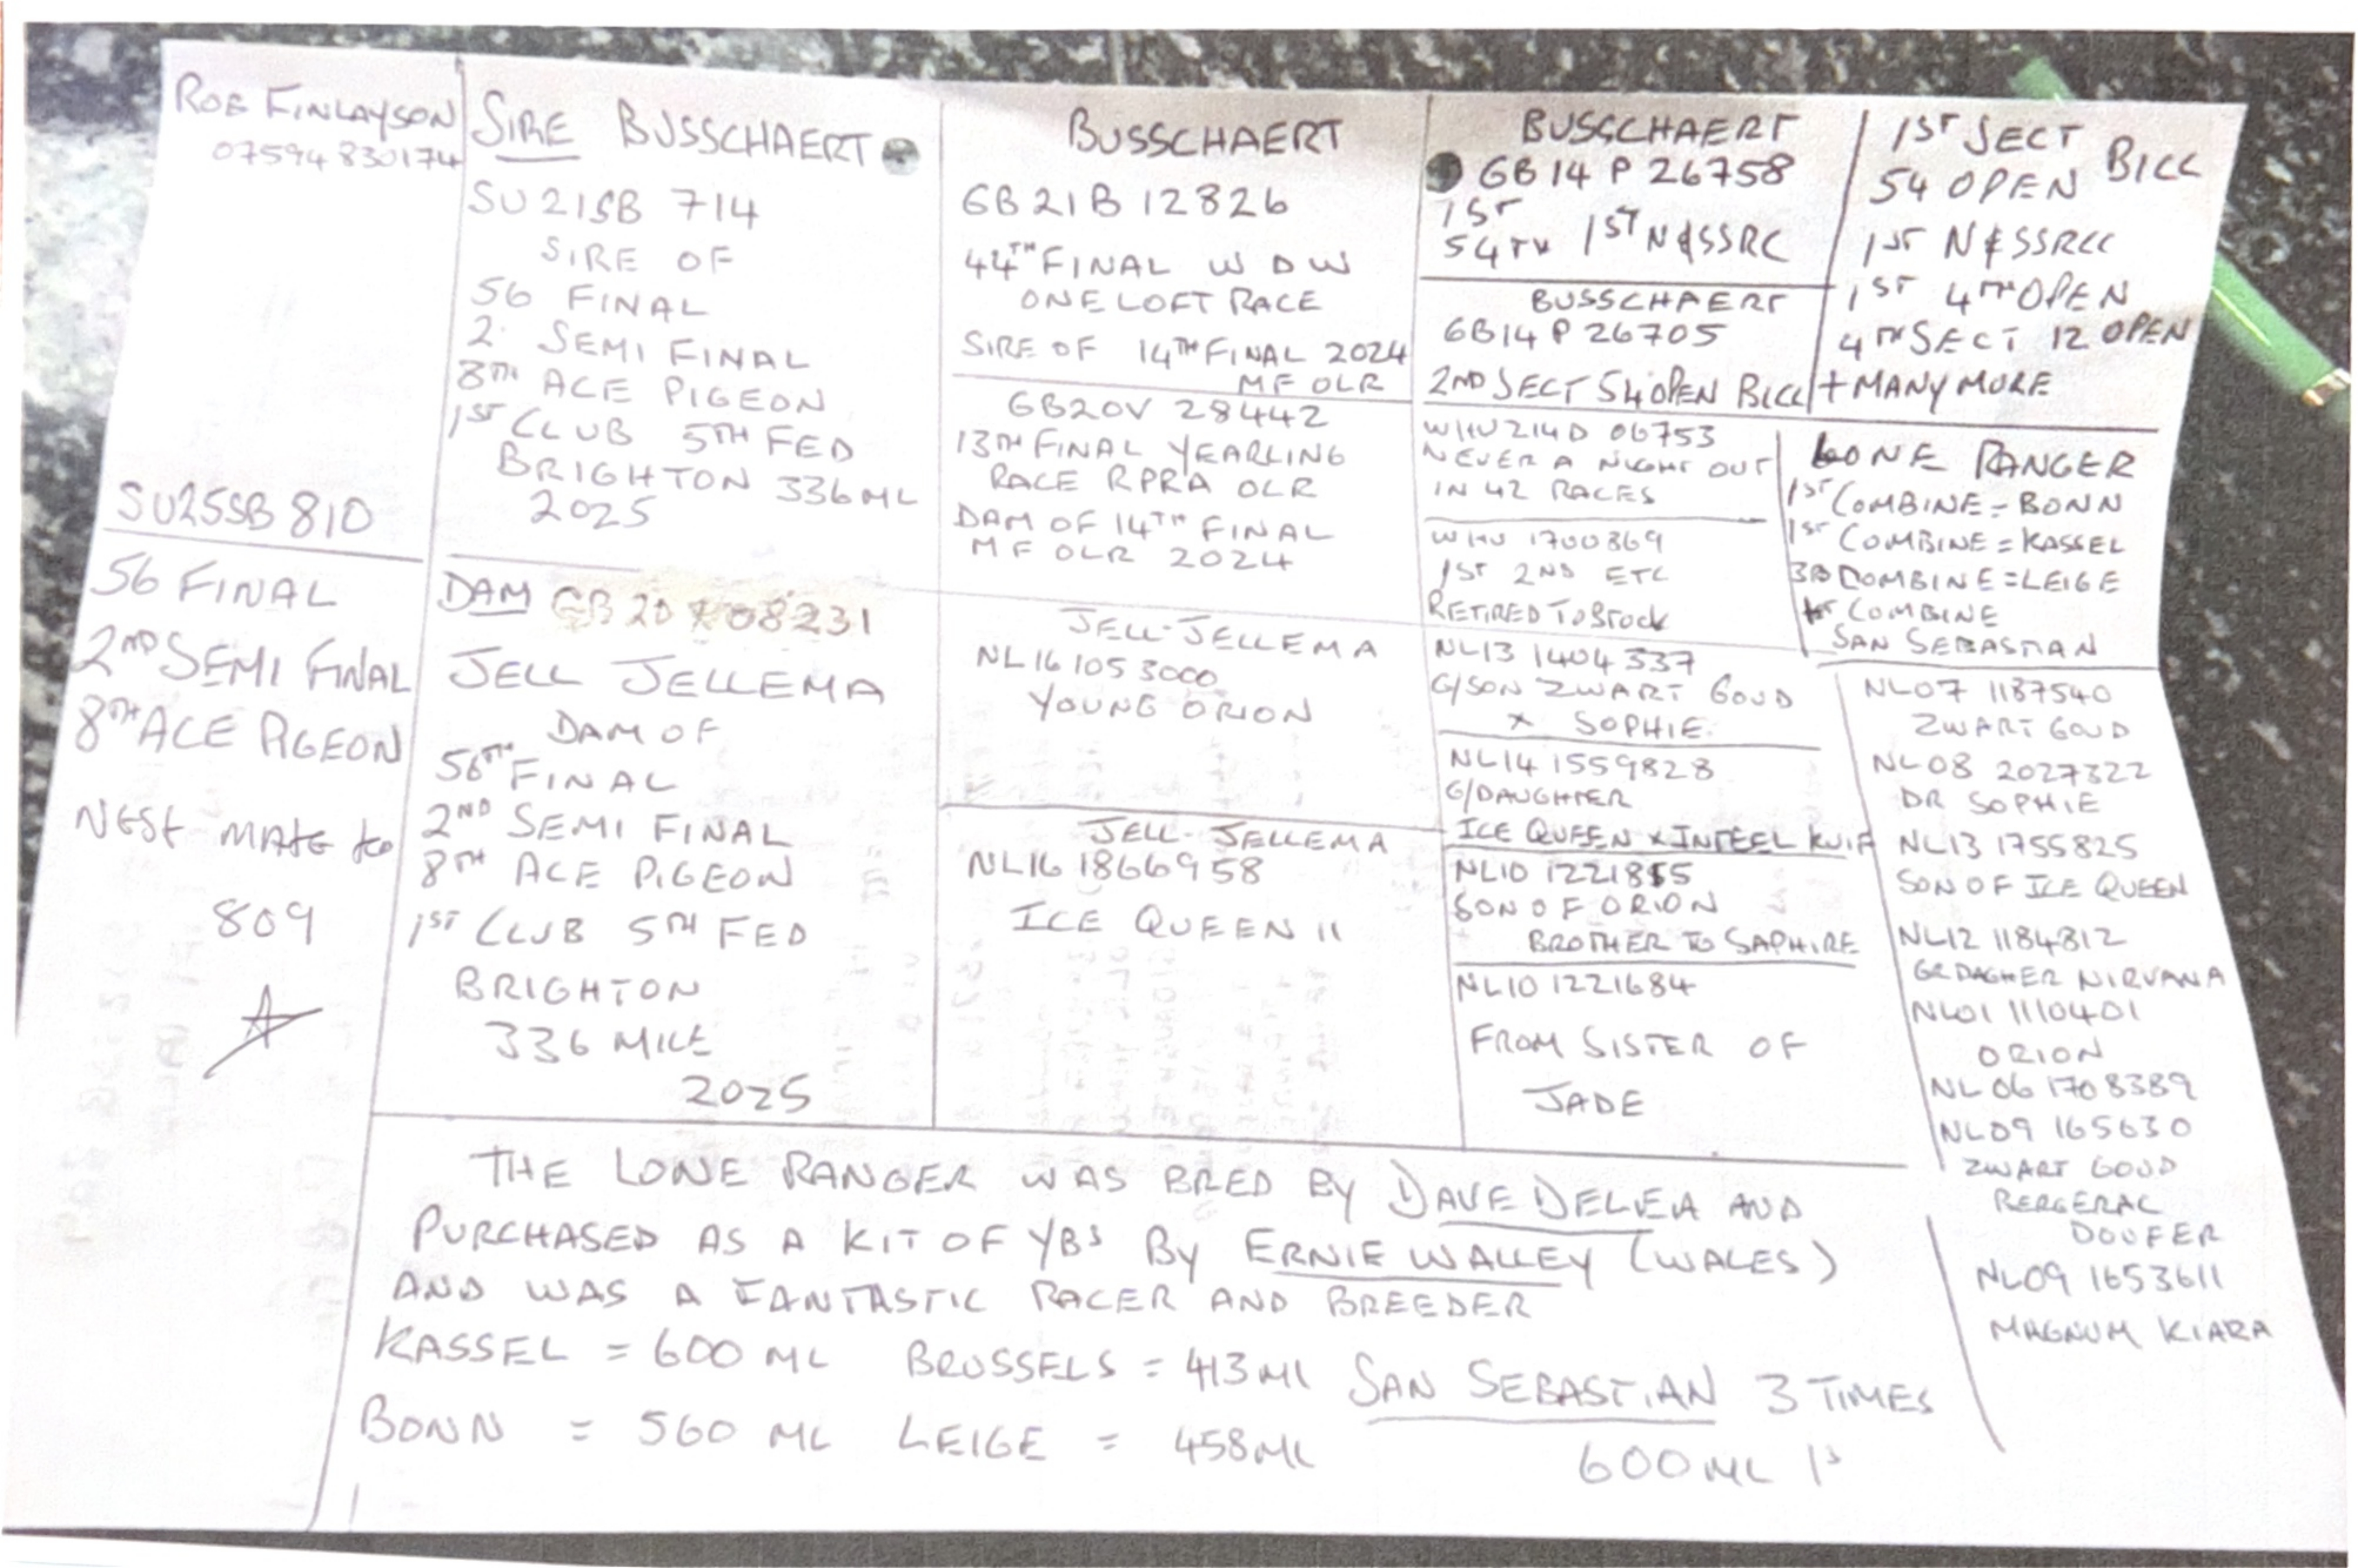 ROB FINLAYSON
07594 830174
SU25SB 810
56 FINAL
2ND SEMI FINAL
8TH ACE PIGEON
NEST MATE to
809
SIRE BUSSCHAERT
SU21SB 714
SIRE OF
56 FINAL
2 SEMI FINAL
8TH ACE PIGEON
1ST CLUB 5TH FED
BRIGHTON 336ML
2025
DAM GB 20 08231
JELL JELLEMA
DAM OF
56TH FINAL
2ND SEMI FINAL
8TH ACE PIGEON
1ST CLUB 5TH FED
BRIGHTON
336 MILE
2025
BUSSCHAERT
GB21B 12826
44TH FINAL W D W
ONE LOFT RACE
SIRE OF 14TH FINAL 2024
MF OLR
GB20V 28442
13TH FINAL YEARLING
RACE RPRA OLR
DAM OF 14TH FINAL
MF OLR 2024
JELL-JELLEMA
NL16 1053000
YOUNG ORION
JELL-JELLEMA
NL16 1866958
ICE QUEEN 11
BUSSCHAERT
GB14 P 26758
1ST
54TH 1ST N&SSRC
BUSSCHAERT
GB14 P 26705
2ND SECT 54 OPEN BILL
1ST SECT
54 OPEN BILL
1ST N&SSRCC
1ST 4TH OPEN
4TH SECT 12 OPEN
+ MANY MORE
WHU214D 06753
NEVER A NIGHT OUT
IN 42 RACES
WHU 1700869
1ST 2ND ETC
RETIRED TO STOCK
LONE RANGER
1ST COMBINE = BONN
1ST COMBINE = KASSEL
3RD COMBINE = LEIGE
1ST COMBINE
SAN SEBASTIAN
NL13 1404337
G/SON ZWART GOUD
X SOPHIE
NL14 1559828
G/DAUGHTER
ICE QUEEN X INTEEL KUIF
NL10 1221855
SON OF ORION
BROTHER TO SAPHIRE
NL10 1221684
FROM SISTER OF
JADE
NL07 1187540
ZWART GOUD
NL08 2027322
DR SOPHIE
NL13 1755825
SON OF ICE QUEEN
NL12 1184812
GRDAGHER NIRVANA
NL01 1110401
ORION
NL06 1708389
NL09 165630
ZWART GOUD
BERGERAC
DOUFER
NL09 1653611
MAGNUM KIARA
THE LONE RANGER WAS BRED BY DAVE DELEA AND
PURCHASED AS A KIT OF YBS BY ERNIE WALLEY (WALES)
AND WAS A FANTASTIC RACER AND BREEDER
KASSEL = 600 ML BRUSSELS = 413ML SAN SEBASTIAN 3 TIMES
BONN = 560 ML LEIGE = 458ML 600ML